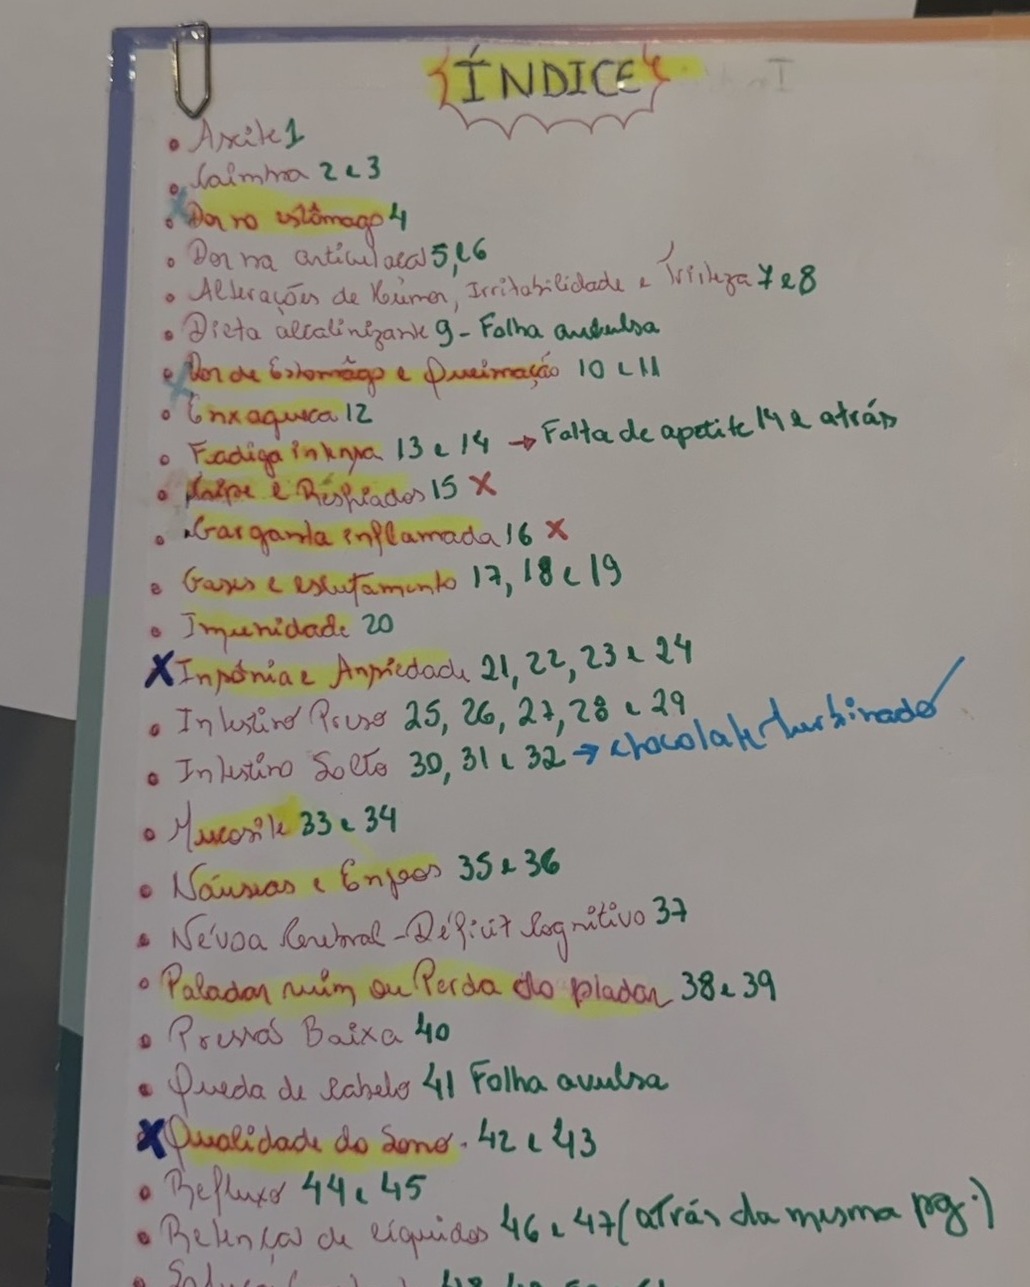 ÍNDICE
• Ascite 1
• Caimbra 2 e 3
• Dor no estômago 4
• Dor na articulacal 5, e 6
• Alterações de Húmor, Irritabilidade e Tristeza 7 e 8
• Dieta alcalinizante 9 - Folha avulsa
• Dor de Estomâgo e Queimação 10 e 11
• Enxaqueca 12
• Fadiga intensa 13 e 14 → Falta de apetite 14 e atrás
• Gripe e Resfriados 15 X
• Garganta inflamada 16 X
• Gases e estufamento 17, 18 e 19
• Imunidade 20
X Insônia e Ansiedade 21, 22, 23 e 24
• Intestino Preso 25, 26, 27, 28 e 29
• Intestino Solto 30, 31 e 32 → chocolate turbinado
• Mucosite 33 e 34
• Náuseas e Enjoos 35 e 36
• Névoa Cerebral - Déficit Cognitivo 37
• Paladar ruim ou Perda do pladar 38 e 39
• Pressão Baixa 40
• Queda de cabelo 41 Folha avulsa
X Qualidade do Sono. 42 e 43
• Refluxo 44 e 45
• Retenção de líquidos 46 e 47 (atrás da mesma pg.)